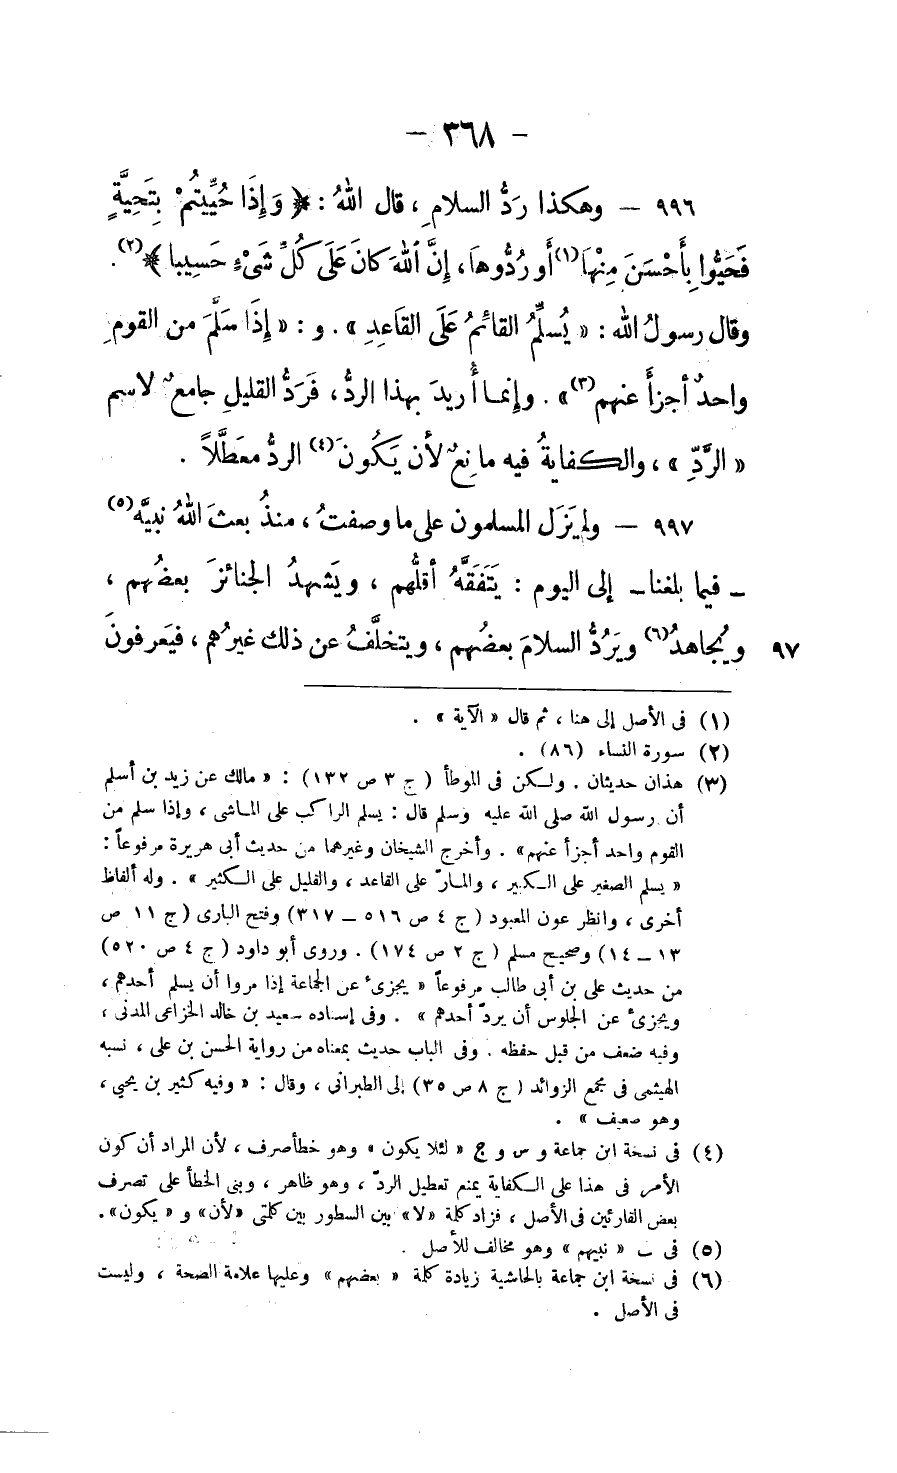 – ٣٦٨ –
٩٩٦ – وهكذا رَدُّ السلامِ ، قال اللهُ : ﴿ وَإِذَا حُيِّيتُمْ بِتَحِيَّةٍ
فَحَيُّوا بِأَحْسَنَ مِنْهَا(١) أو رُدُّوهَا ، إِنَّ اللهَ كَانَ عَلَى كُلِّ شَيْءٍ حَسِيبا ﴾(٢) .
وقال رسولُ الله : « يُسلِّمُ القائمُ عَلَى القَاعِدِ » . و : « إِذَا سَلَّمَ من القومِ
واحدٌ أجزأَ عنهم(٣) » . وإنما أُريدَ بهذا الردُّ ، فَرَدُّ القليلِ جامعٌ لاسم
« الرَّدِّ » ، والكفايةُ فيه مانعٌ لأن يَكُونَ(٤) الردُّ معَطَّلاً .
٩٩٧ – ولم يَزَل المسلمون على ما وصفتُ ، منذُ بعث اللهُ نبيَّه(٥)
ـ فيما بلغنا ـ إلى اليوم : يَتَفَقَّهُ أقلُّهم ، ويَشهدُ الجنائزَ بعضُهم ،
٩٧ ويُجاهدُ(٦) ويَرُدُّ السلامَ بعضُهم ، ويتخلَّفُ عن ذلك غيرُهم ، فيَعرفونَ
(١) فى الأصل إلى هنا ، ثم قال « الآية » .
(٢) سورة النساء (٨٦) .
(٣) هذان حديثان . ولكن فى الموطأ ( ج ٣ ص ١٣٢ ) : « مالك عن زيد بن أسلم
أن رسول الله صلى الله عليه وسلم قال : يسلم الراكب على الماشى ، وإذا سلم من
القوم واحد أجزأ عنهم » . وأخرج الشيخان وغيرهما من حديث أبى هريرة مرفوعاً :
« يسلم الصغير على الكبير ، والمارّ على القاعد ، والقليل على الكثير » . وله ألفاظ
أخرى ، وانظر عون المعبود ( ج ٤ ص ٥١٦ – ٣١٧ ) وفتح البارى ( ج ١١ ص
١٣ – ١٤ ) وصحيح مسلم ( ج ٢ ص ١٧٤ ) . وروى أبو داود ( ج ٤ ص ٥٢٠ )
من حديث على بن أبى طالب مرفوعاً « يجزئ عن الجماعة إذا مروا أن يسلم أحدهم ،
ويجزئ عن الجلوس أن يردّ أحدهم » . وفى إسناده سعيد بن خالد الخزاعى المدنى ،
وفيه ضعف من قبل حفظه . وفى الباب حديث بمعناه من رواية الحسن بن على ، نسبه
الهيثمى فى مجمع الزوائد ( ج ٨ ص ٣٥ ) إلى الطبرانى ، وقال : « وفيه كثير بن يحيى ،
وهو ضعيف » .
(٤) فى نسخة ابن جماعة و س و ج « لئلا يكون » وهو خطأ صرف ، لأن المراد أن كون
الأمر فى هذا على الكفاية يمنع تعطيل الردّ ، وهو ظاهر ، وبنى الخطأ على تصرف
بعض القارئين فى الأصل ، فزاد كلمة «لا» بين السطور بين كلمتى «لأن» و « يكون».
(٥) فى ب « نبيهم » وهو مخالف للأصل .
(٦) فى نسخة ابن جماعة بالحاشية زيادة كلمة « بعضهم » وعليها علامة الصحة ، وليست
فى الأصل .